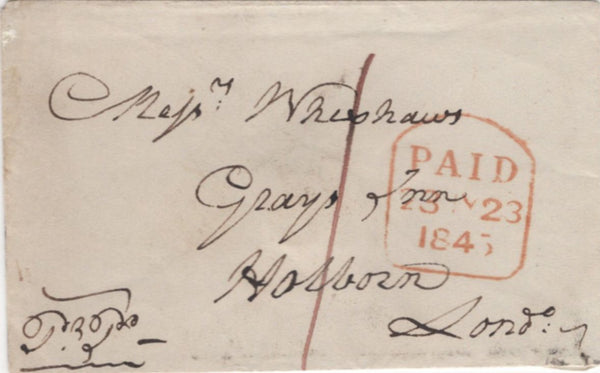 Messrs. Wheshaws
Grays Inn
Holborn
Londo.
PAID
23 23
1845